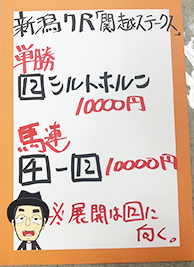 新潟7R「関越ステークス」
単勝
12 シルトホルン
10000円
馬連
4-12 10000円
※展開は12に
向く。